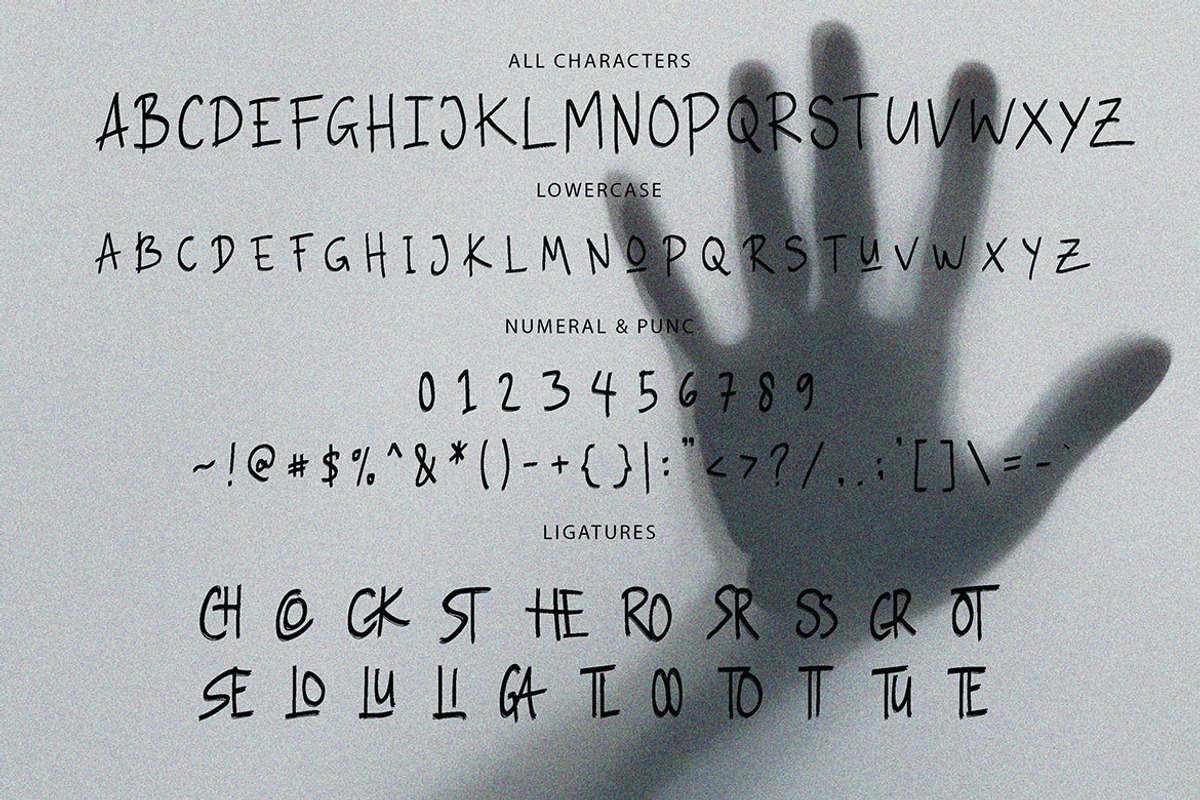 ALL CHARACTERS
ABCDEFGHIJKLMNOPQRSTUVWXYZ
LOWERCASE
A B C D E F G H I J K L M N O P Q R S T U V W X Y Z
NUMERAL & PUNC
0 1 2 3 4 5 6 7 8 9
~ ! @ # $ % ^ & * ( ) - + { } | : " < > ? / , . ; ' [ ] \ = - `
LIGATURES
CH CO CK ST HE RO SR SS GR OT
SE LO LU LI GA TL OO TO TT TU TE